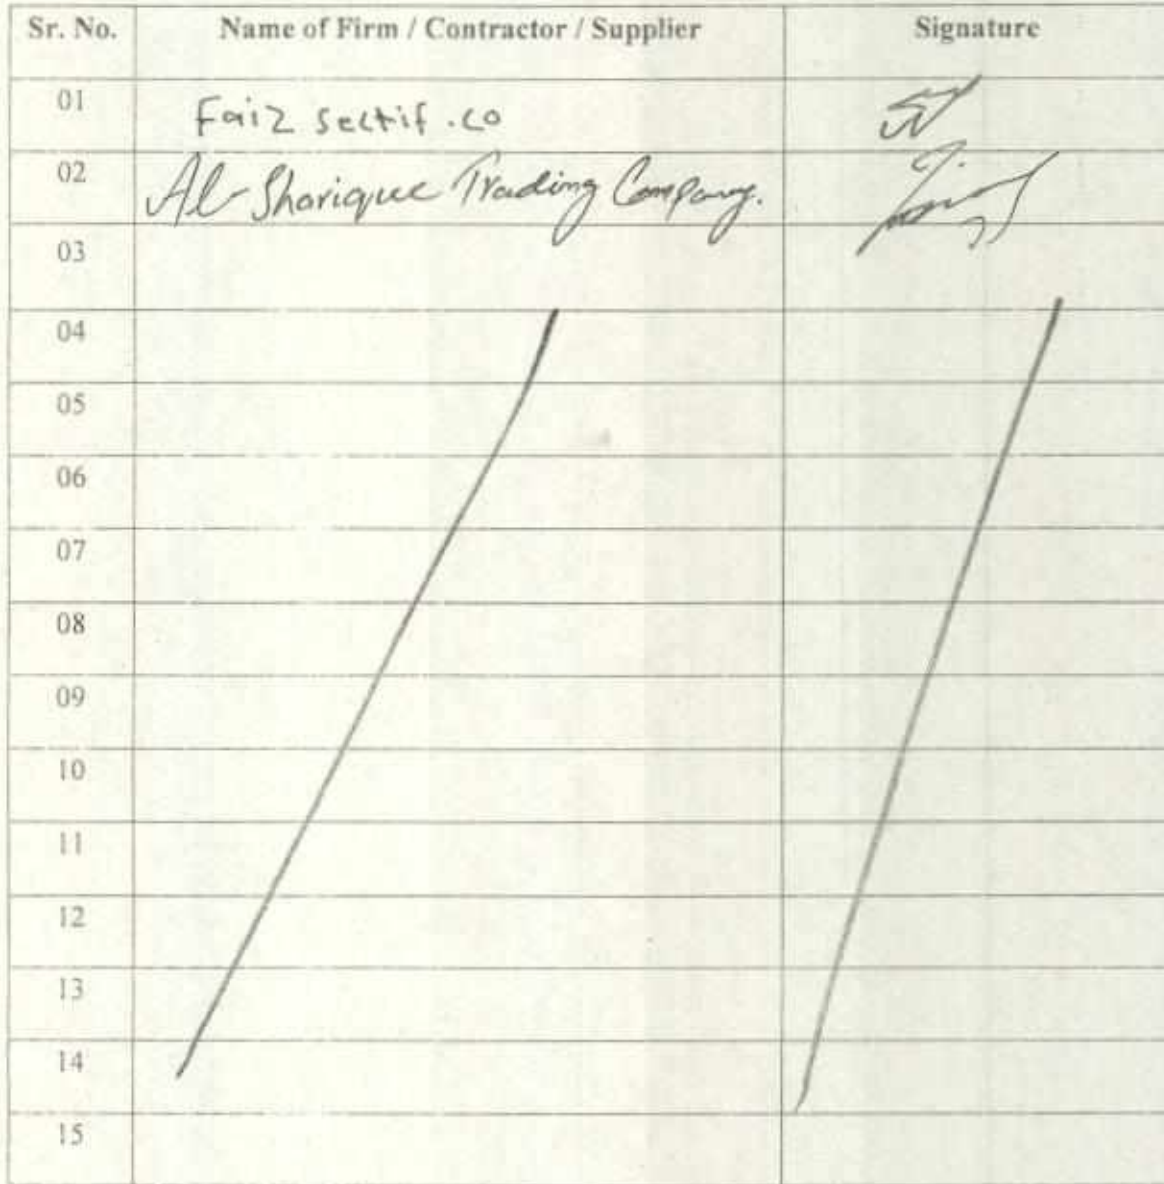 Sr. No. Name of Firm / Contractor / Supplier Signature
01 Faiz sectif .co
02 Al-Sharique Trading Company.
03
04
05
06
07
08
09
10
11
12
13
14
15